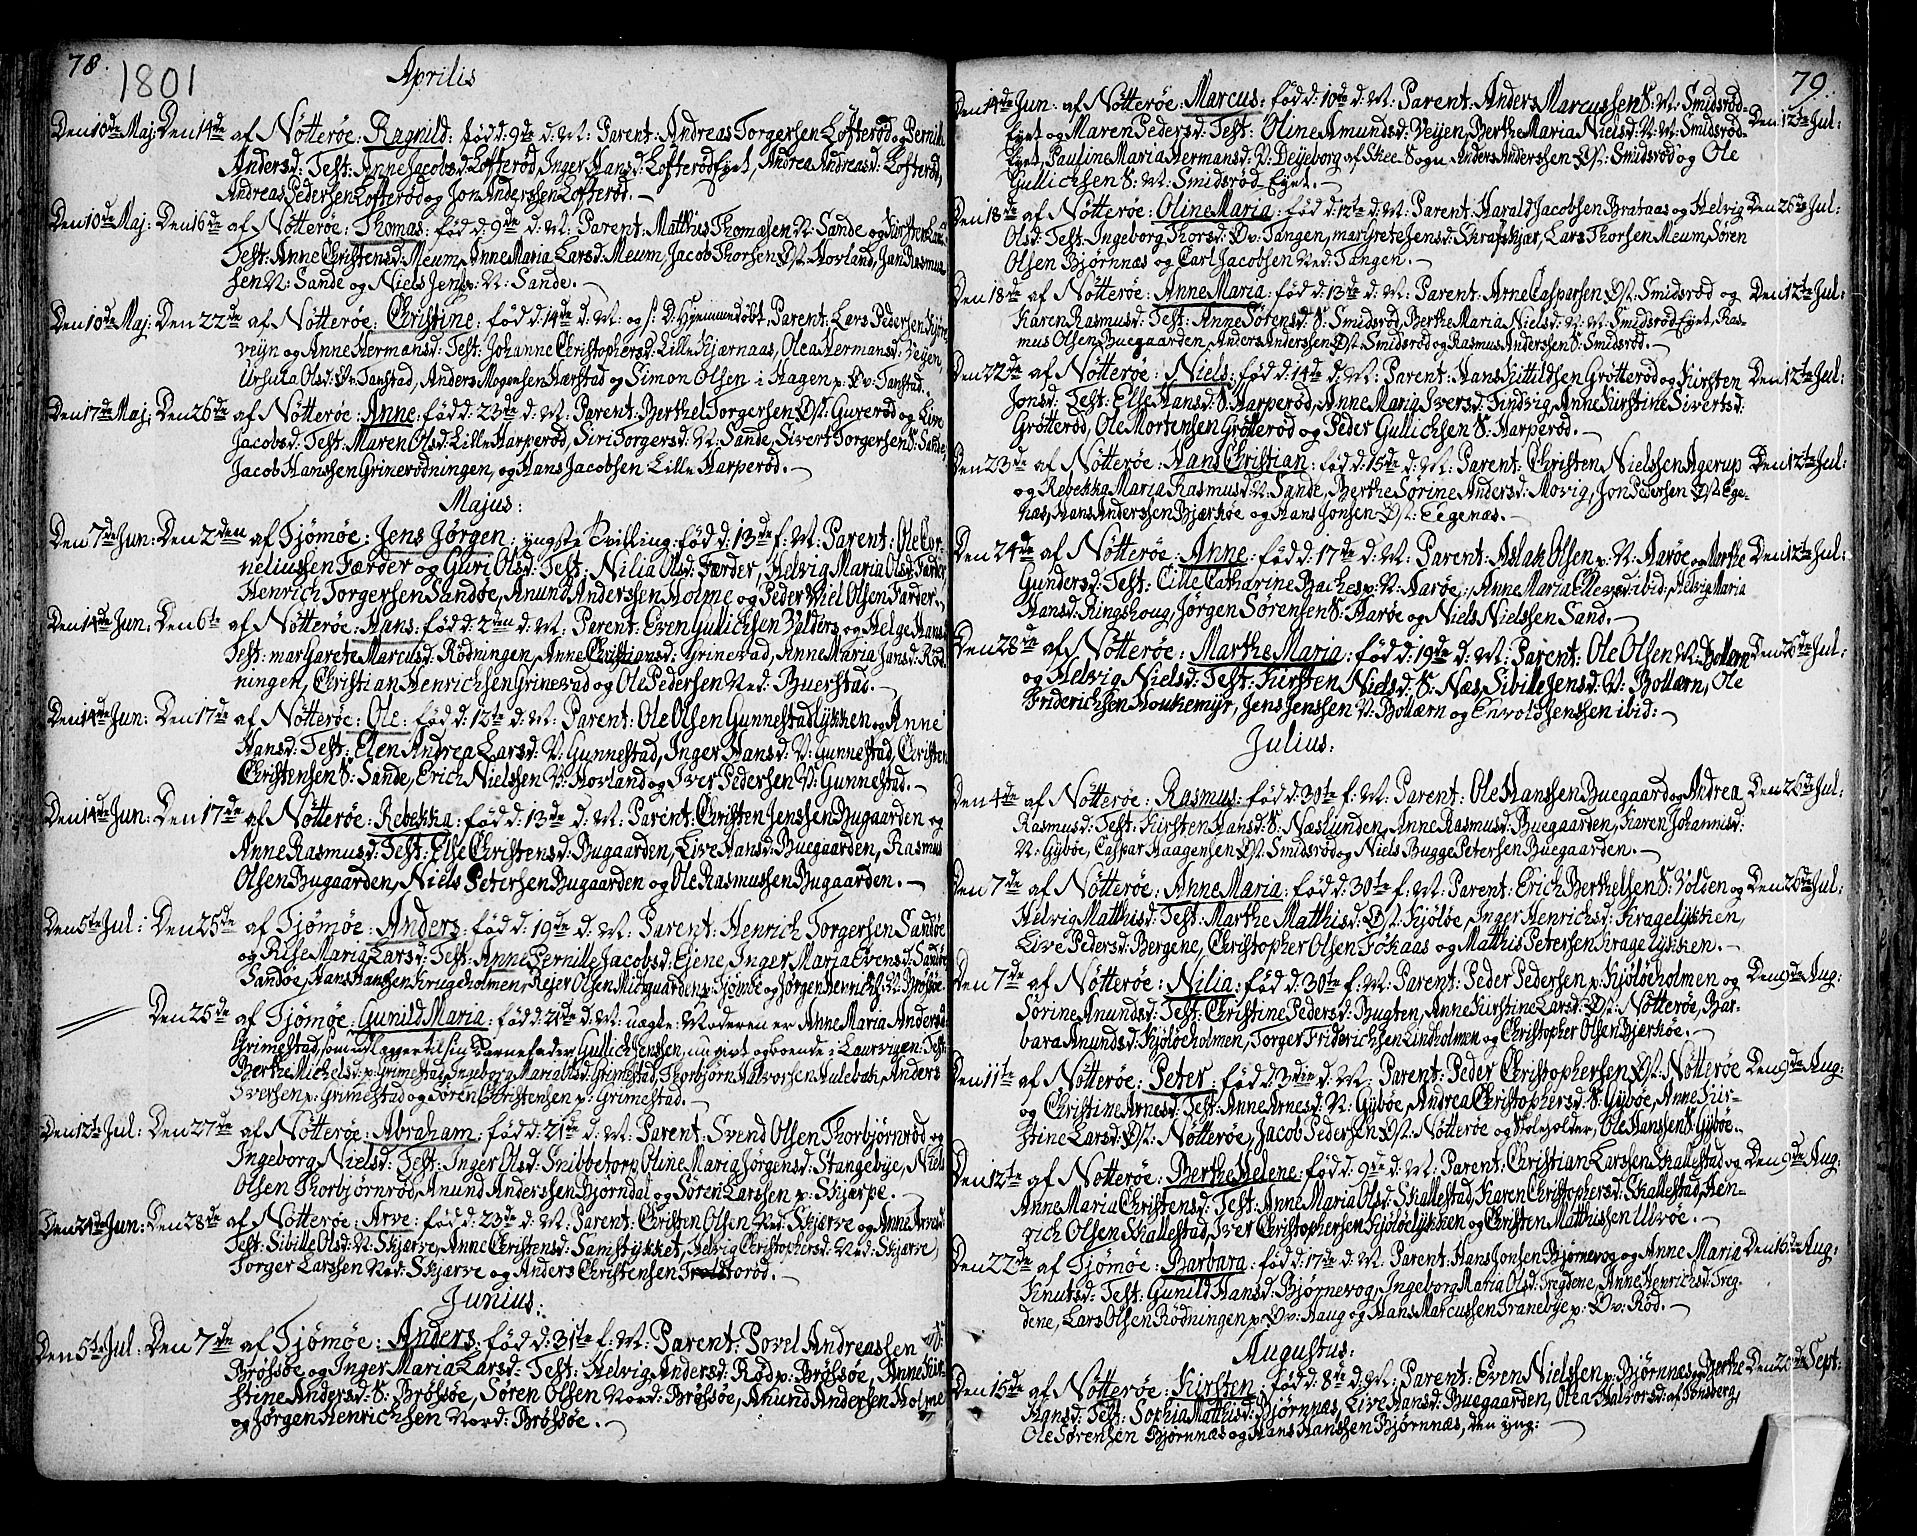 78.
1801
Aprilis
Den 10de Maj: Den 14de af Nötterøe: Ragnild: född: 9de d: M: Parent: Andreas Torgersen Löfterød og Pernille
Andersd: Test: Anne Jacobsd: Löfterød, Inger Hansd: Löfterød Eyet, Andrea Andreasd: Löfterød,
Andreas Pedersen Löfterød og Jon Anderssen Löfterød. –
Den 10de Maj: Den 16de af Nötterøe: Thomas: född: 9de d: M: Parent: Matthis Thomæsen N: Sande og Kirsten
Test: Anne Christensd: Meum, Anne Maria Larsd: Meum, Jacob Thorsen Øst: Hovland, Jan Rasmus
sen N: Sande og Niels Jensen N: Sande. –
Den 10de Maj: Den 22de af Nötterøe: Christine: född: 14de d: M: og f: D: Hjemmedöbt, Parent: Lars Pedersen
veyn og Anne Hermansd: Test: Johanne Christophersd: Lille Kjærnaas, Olea Hermansd: Veyen,
Ursula Olsd: Øv: Tanstad, Anders Mogensen Hærstad og Simon Olsen i Hagen p: Øv: Tanstad.
Den 17de Maj: Den 26de af Nötterøe: Anne: född: 23de d: M: Parent: Berthel Torgersen Øst: Gurerød og Live
Jacobsd: Test: Maren Olsd: Lille Harperød, Siri Torgersd: N: Sande, Sivert Torgersen S: Sande,
Jacob Hanssen Grinerødningen, og Hans Jacobsen Lille Harperød. –
Majus:
Den 7de Jun: Den 2den af Tjömøe: Jens Jörgen: yngste Tvilling: född: 13de f: M: Parent: Ole Cor-
neliussen Færder og Guri Olsd: Test: Nilia Olsd: Færder, Helvig Maria Olsd: Færder,
Henrich Torgersen Sandöe, Anund Anderssen Holme og Peder Wiel Olsen Færder. –
Den 14de Jun: Den 6te af Nötterøe: Hans: född: 2den d: M: Parent: Even Gullichsen Bolderz og Helge Hansd:
Test: margarete Marcusd: Rödningen, Anne Christiansd: Grinerød, Anne Maria Jansd: Röd-
ningen, Christian Henrichsen Grinerød og Ole Pedersen Ned: Buerstad. –
Den 14de Jun: Den 17de af Nötterøe: Ole: född: 12te d: M: Parent: Ole Olsen Gunnestadlykken og Anne
Hansd: Test: Elen Andrea Larsd: N: Gunnestad, Inger Hansd: N: Gunnestad, Christen
Christensen S: Sande, Erich Nielssen N: Hovland og Iver Pedersen N: Gunnestad. –
Den 14de Jun: Den 17de af Nötterøe: Rebekka: född: 13de d: M: Parent: Christen Jenssen Bugaarden og
Anne Rasmusd: Test: Else Christensd: Bugaarden, Live Hansd: Buegaarden, Rasmus
Olsen Bugaarden, Niels Petersen Bugaarden og Ole Rasmussen Bugaarden. –
Den 5te Jul: Den 25de af Tjömøe: Anders: född: 19de d: M: Parent: Henrich Torgersen Sandöe
og Else Maria Larsd: Test: Anne Pernille Jacobsd: Ejene, Inger Maria Evensd: Sandöe
Sandøe, Hans Hanssen Krugeholmen, Rejer Olsen Midtgaarden p: Tjömøe og Jörgen Henrichs: N: Bröfsöe.
Den 25de af Tjömøe: Gunild Maria: född: 21de d: M: uægte: Moderen er Anne Maria Andersd:
Grimestad, som udlægger til sin Barnefader Gullich Jenssen, nu givt og boende i Laurvigen: Test:
Berthe Michelsd: p: Grimestad, Ingeborg Maria Olsd: Grimestad, Thorbjörn Halvorsen Hulebak, Anders
Iversen p: Grimestad og Sören Christensen p: Grimestad. –
Den 12te Jul: Den 27de af Nötterøe: Abraham: född: 21de d: M: Parent: Svend Olsen Thorbjørnrød og
Ingeborg Nielsd: Test: Inger Olsd: Snibbetorp, Oline Maria Jörgensd: Stangebye, Niels
Olsen Thorbjørnrød, Anund Anderssen Bjørndal og Sören Larssen p: Skjærpe. –
Den 24de Jun: Den 28de af Nötterøe: Arve: född: 23de d: M: Parent: Christen Olsen Ned: Skjærve og Anne Arvesd:
Test: Sibille Olsd: N: Skjærve, Anne Christensd: Samstykket, Helvig Christophersd: Ned: Skjærve,
Torger Larssen Ned: Skjærve og Anders Christensen Troldtorød. –
Junius:
Den 5te Jul: Den 7de af Tjömøe: Anders: född: 31te f: M: Parent: Povel Andreassen
Bröfsöe og Inger Maria Larsd: Test: Helvig Andersd: Rød p: Bröfsöe, Anne Kir-
stine Andersd: S: Bröfsöe, Sören Olsen Nord: Bröfsöe, Anund Andersen Holme
og Jörgen Henrichsen Nord: Bröfsöe. –
79.
Den 14de Jun: af Nötterøe: Marcus: född: 10de d: M: Parent: Anders Marcussen S: M: Smidsröd-
Eyet og Maren Pedersd: Test: Oline Amundsd: Veyen, Berthe Maria Nielsd: N: M: Smidsröd- Den 12te Jul:
Eyet, Pauline Maria Hermansd: N: Deyeborg af Skee Sogn Anders Anderssen Øst: Smidsröd og Ole
Gullichsen S: M: Smidsröd Eyet. –
Den 18de af Nötterøe: Oline Maria: född: 12te d: M: Parent: Harald Jacobsen Brataas og Helvig Den 26de Jul:
Olsd: Test: Ingeborg Thorsd: Øv: Tangen, margrete Jensd: Skrafskjær, Lars Thorsen Meum, Sören
Olsen Bjørnnæs og Carl Jacobsen Ned: Tangen. –
Den 18de af Nötterøe: Anne Maria: född: 13de d: M: Parent: Arne Casparsen Øst: Smidsröd og Den 12te Jul:
Karen Rasmusd: Test: Anne Sörensd: S: Smidsröd, Berthe Maria Nielsd: N: M: Smidsröd Eyet, Ras-
mus Olsen Buegaarden, Anders Anderssen Øst: Smidsröd og Rasmus Anderssen S: Smidsröd. –
Den 22de af Nötterøe: Niels: född: 14de d: M: Parent: Hans Kittildsen Grötterød og Kirsten Den 12te Jul:
Jonsd: Test: Else Hansd: S: Harperød, Anne Maria Iversd: Tindvig, Anne Kirstine Sivertsd:
Grötterød, Ole Mortensen Grötterød og Peder Gullichsen S: Harperød. –
Den 23de af Nötterøe: Hans Christian: född: 15de d: M: Parent: Christen Nielssen Agerup Den 12te Jul:
og Rebekka Maria Rasmusd: N: Sande, Berthe Sörine Andersd: Movig, Jon Pedersen Øst: Ege-
næs, Hans Anderssen Bjærkøe og Hans Jonsen Øst: Eegenæs. –
Den 24de af Nötterøe: Anne: född: 17de d: M: Parent: Aslak Olsen p: N: Aarøe og Marthe Den 12te Jul:
Gundersd: Test: Cille Catharine Baches p: N: Aarøe, Anne Maria Ellevsd: ibid: Helvig Maria
Hansd: Ringshoug, Jörgen Sörensen S: Aarøe og Niels Nielssen Sand. –
Den 28de af Nötterøe: Marthe Maria: född: 19de d: M: Parent: Ole Olsen N: Bollærn Den 26de Jul:
og Helvig Nielsd: Test: Kirsten Nielsd: S: Næs, Sibille Jensd: N: Bollærn, Ole
Friderichsen Houkemyr, Jens Jenssen N: Bollærn og Envold Jenssen ibid: –
Julius:
Den 4de af Nötterøe: Rasmus: född: 30te f: M: Parent: Ole Hanssen Buegaard og Andrea Den 26de Jul:
Rasmusd: Test: Kirsten Hansd: S: Næslunden, Anne Rasmusd: Buegaarden, Karen Johannisd:
N: Gyböe, Caspar Haagensen Øst: Smidsröd og Niels Bugge Petersen Buegaarden. –
Den 7de af Nötterøe: Anne Maria: född: 30te f: M: Parent: Erich Berthelsen S: Volden og Den 26de Jul:
Helvig Matthisd: Test: Marthe Matthisd: Øst: Kjölöe, Inger Henrichsd: Kragelykken,
Live Pedersd: Bergene, Christopher Olsen Fökaas og Matthis Petersen Kragelykken. –
Den 7de af Nötterøe: Nilia: född: 30te f: M: Parent: Peder Pedersen p: Kjölöeholmen og Den 9de Aug:
Sörine Anundsd: Test: Christine Pedersd: Bugten, Anne Kirstine Larsd: Øst: Nötterøe, Bar-
bara Anundsd: Kjölöeholmen, Torger Friderichsen Lindholmen og Christopher Olsen Bjærkøe. –
Den 11te af Nötterøe: Peter: född: 3die d: M: Parent: Peder Christophersen Øst: Nötterøe Den 9de Aug:
og Christine Arnesd: Test: Anne Arnesd: N: Gyböe, Andrea Christophersd: S: Gyböe, Anne Kir-
stine Larsd: Øst: Nötterøe, Jacob Pedersen Øst: Nötterøe og Skoleholder, Ole Hanssen S: Gyböe.
Den 12te af Nötterøe: Berthe Helene: född: 9de d: M: Parent: Christian Larssen Skallestad og Den 9de Aug:
Anne Maria Christensd: Test: Anne Maria Olsd: Skallestad, Karen Christophersd: Skallestad, Hen-
rich Olsen Skallestad, Iver Christophersen Kjölöelykken og Christen Matthissen Ulvøe. –
Den 22de af Tjömøe: Barbara: född: 17de d: M: Parent: Hans Jonsen Bjørnevog og Anne Maria Den 16de Aug:
Knutsd: Test: Gunild Hansd: Bjørnevog, Ingeborg Maria Olsd: Tregdene, Anne Henrichsd: Treg-
dene, Lars Olsen Rödningen p: Øv: Haug og Hans Marcussen Tranebye p: Øv: Rød. –
Augustus:
Den 15de af Nötterøe: Kirsten: född: 8de d: M: Parent: Even Nielssen p: Bjørnnæs og Berthe Den 20de Sept:
Hansd: Test: Sophia Matthisd: Bjørnnæs, Live Hansd: Buegaarden, Olea Halvorsd: af Tönsberg,
Ole Sörensen Bjørnnæs og Hans Hanssen Bjørnnæs, den yng: –